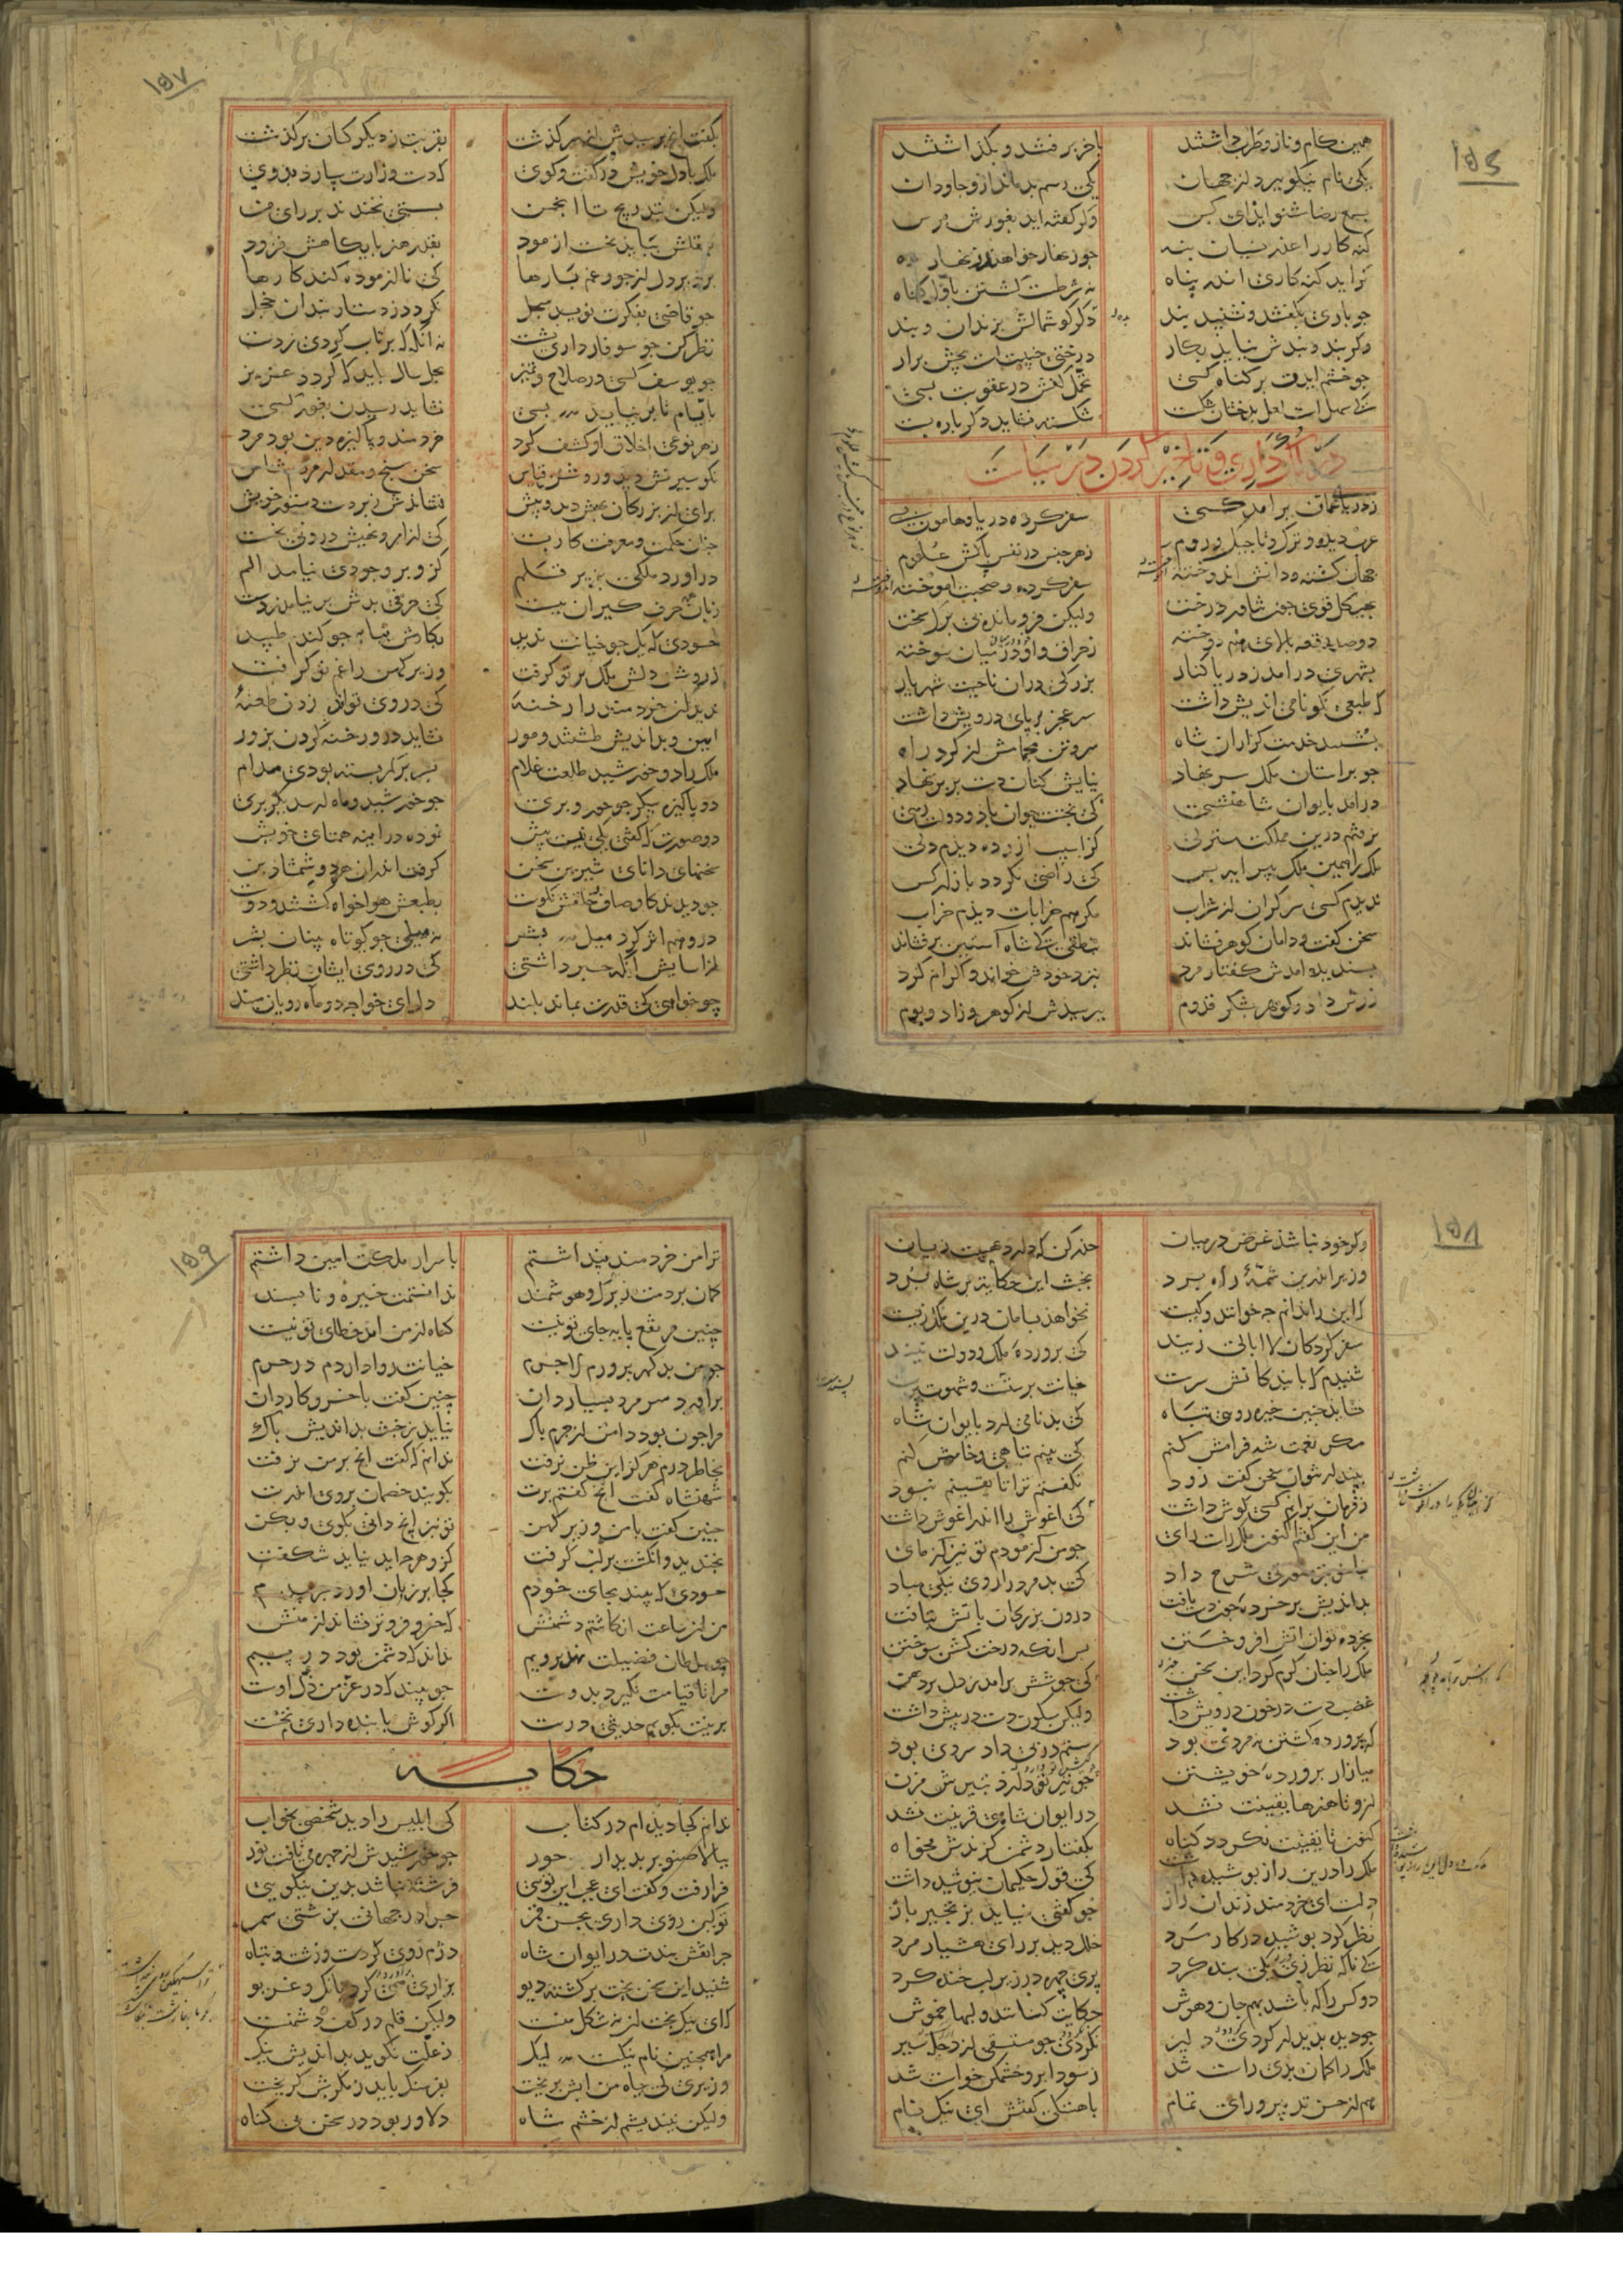 ۱۵۶
همین کام و ناز و طرب داشتند باخر برفتند و بگذاشتند
یکی نام نیکو ببرد از جهان یکی رسم بد ماند ازو جاودان
بسمع رضا مشنو ایذای کس وگر گفته اید بغورش برس
کنه کار را عذر نسیان بنه جو زنهار خواهند زنهار ده
گر اید کنه کاری اندر پناه نه شرطست کشتن باول کناه
جو باری بکفتند و نشنید پند دکر کوشمالش بزندان و بند
وکر بند و پندش نیاید بکار درختی خبیث است بیخش برار
جو خشم ایدت بر کناه کسی تحمل کنش در عقوبت بسی
که سهل است لعل بدخشان شکست شکسته نشاید دکر باره بست
در داری و تاخیر کردن در سیاست
ز دریا عمان بر امد کسی سفر کرده دریا و هامون بسی
عرب دیده و ترک و تاجیک و روم ز هر جنس در نفس پاکش علوم
جهان کشته و دانش اندوخته سفر کرده و صحبت اموخته
بهیکل قوی جون تناور درخت ولیکن فرو مانده بی برک سخت
دو صد رقعه بالای هم دوخته ز حراق و او در میان سوخته
بشهری در امد ز دریا کنار بزرکی دران ناحیت شهریار
که طبعی نکو نامی اندیش داشت سر عجز بر پای درویش داشت
بشستند خدمت کزاران شاه سر و تن بحمامش از کرد راه
جو بر استان ملک سر نهاد نیایش کنان دست بر بر نهاد
درامد بایوان شاهنشهی که بختت جوان باد و دولت رهی
نرفتم درین مملکت منزلی کز اسیب ازرده دیدم دلی
ملک را همین ملک پیرایه بس که راضی نکردد بازار کس
ندیدم کسی سر کران از شراب مکر هم خرابات دیدم خراب
سخن کفت و دامان کوهر فشاند بنطقی که شاه استین برفشاند
پسند امدش کفتار مرد بنزد خودش خواند و اکرام کرد
زرش داد و کوهر بشکر قدوم بپرسیدش از کوهر و زاد و بوم
۱۵۷
بکفت انچ پرسیدش از سر کذشت بقربت ز دیکر کسان برکذشت
ملک با دل خویش در کفت و کوی که دست وزارت سپارد بدوی
ولیکن بتدریج تا انجمن بسستی نخندند بر رای من
بعقلش بباید نخست ازمود بقدر هنر پایکاهش فزود
برد بر دل از جور غم بارها که نا ازموده کند کارها
جو قاضی بفکرت نویسد سجل نکردد ز دستار بندان خجل
نظر کن جو سوفار داری بشست نه انکه که پرتاب کردی ز دست
جو یوسف کسی در صلاح و تمیز بجل سال باید که کردد عزیز
بایام تا بر نیاید بسی نشاید رسیدن بغور کسی
ز هر نوعی اخلاق او کشف کرد خردمند و پاکیزه دین بود مرد
نکو سیرتش دید و روشن قیاس سخن سنج و مقدار مردم شناس
برای از بزرکان بهش دید و بیش نشاندش زبر دست دستور خویش
جنان حکمت و معرفت کار بست که از امر و نهیش درونی نخست
دراورد ملکی بزیر قلم کزو بر وجودی نیامد الم
زبان همه حرف کیران ببست که حرفی بدش بر نیامد ز دست
حسودی که یک جو خیانت ندید بکارش نیامد جو کندم طپید
ز روشن دلش ملک پرتو کرفت وزیر کهن را غم نو کرفت
ندید از خردمند را رخنه که در وی تواند زدن طعنه
امین و بد اندیش طشتند و مور نشاید درو رخنه کردن بزور
ملک را دو خورشید طلعت غلام بسر بر کمر بسته بودی مدام
دو پاکیزه پیکر جو حور و بری جو خورشید و ماه از سه دیکر بری
دو صورت که کفتی یکی نیست بیش نموده در اینه همتای خویش
سخنهای دانای شیرین سخن کرفت اندران هر دو شمشاد بن
جو دیدند کاوصاف و خلقش نکوست بطبعش هواخواه کشتند و دوست
درو هم اثر کرد میل بشر نه میلی جو کوتاه بینان بشر
از اسایش انکه خبر داشتی که در روی ایشان نظر داشتی
چو خواهی که قدرت بماند بلند دل ای خواجه در ماه رویان مبند
۱۵۸
وکر خود نباشد غرض درمیان حذر کن که دارد بهیبت زیان
وزیر اندرین شمهٔ راه برد بخبث این حکایت بر شاه برد
که این را ندانم جه خوانند و کیست نخواهد بسامان درین ملک زیست
سفر کردکان لاابالی زیند که پروردهٔ ملک و دولت نیند
شنیدم که با بندکانش سرست خیانت پرستست و شهوت پرست
نشاید جنین خیره روی تباه که بدنامی ارد بایوان شاه
مکر نعمت شه فرامش کنم که بینم تباهی و خامش کنم
بپندار نتوان سخن کفت زود نکفتم ترا تا یقینم نبود
ز فرمان برانم کسی کوش داشت که اغوش را اندر اغوش داشت
من این کفتم اکنون ملک راست رای جو من ازمودم تو نیز ازمای
بناخوبتر صورتی شرح داد که بد مرد را روی نیکی مباد
بد اندیش بر خرده جون دست یافت درون بزرکان باتش بتافت
بخرده توان اتش افروختن پس انکه درخت کشن سوختن
ملک را جنان کرم کرد این سخن که جوشش برامد ز دل بر دهن
غضب دست در خون درویش داشت ولیکن سکون دست در پیش داشت
که پرورده کشتن نه مردی بود ستم در پی داد سردی بود
میازار پروردهٔ خویشتن جو تیر تو دارد بتیرش مزن
ازو تا هنرها یقینت نشد در ایوان شاهی قرینت نشد
کنون تا یقینت نکردد کناه بکفتار دشمن کزندش مخواه
ملک را درین راز پوشیده داشت که قول حکیمان نیوشیده داشت
دلست ای خردمند زندان راز جو کفتی نیاید بزنجیر باز
نظر کرد پوشیده در کار مرد خلل دید در رای هشیار مرد
که ناکه نظر زی یکی بنده کرد پری چهره در زیر لب خنده کرد
دو کس را که باشد بهم جان و هوش حکایت کنانند و لبها خموش
جو دیده بدیدار کردی دلیر نکردی جو مستسقی از دجله سیر
ملک را کمان بدی راست شد ز سودا برو خشمکین خواست شد
هم از حسن تدبیر و رای تمام باهستکی کفتش ای نیک نام
۱۵۹
ترا من خردمند پنداشتم باسرار ملکت امین داشتم
کمان بردمت زیرک و هوشمند ندانستمت خیره و ناپسند
چنین مرتفع پایه جای تو نیست کناه از من امد خطای تو نیست
جو من بد کهر پرورم لاجرم خیانت روا داردم در حرم
براورد سر مرد بسیار دان چنین کفت با خسرو کاردان
مرا جون بود دامن از جرم پاک نیاید ز خبث بد اندیش باک
بخاطر درم هرکز این ظن نرفت ندانم که کفت انچ بر من نرفت
شهنشاه کفت انچ کفتم برت بکویند خصمان بروی اندرت
جنین کفت با من وزیر کهن تو نیز انچ دانی بکوی و بکن
بخندید و انکشت بر لب کرفت کزو هرجه اید نیاید شکفت
حسودی که بیند بجای خودم کجا بر زبان اورد جز بدم
من از ساعت انکاشتم دشمنش که خسرو فروتر نشاند از منش
جو سلطان فضیلت نهد بر ویم نداند که دشمن بود در پیم
مرا تا قیامت نکیرد بدوست جو بیند که در عز من ذل اوست
برینت بکویم حدیثی درست اکر کوش با بنده داری نخست
حکایت
ندانم کجا دیده ام در کتاب که ابلیس را دید شخصی بخواب
ببالا صنوبر بدیدار حور جو خورشیدش از چهره می تافت نور
فرا رفت و کفت ای عجب این تویی فرشته نباشد بدین نیکویی
تو کین روی داری بحسن قمر جرا در جهانی بزشتی سمر
جرا نقش بندت در ایوان شاه دژم روی کردست و زشت و تباه
شنید این سخن بخت برکشته دیو بزاری براورد بانک و غریو
که ای نیکبخت ان نه شکل منست ولیکن قلم در کف دشمنست
مرا همجنین نام نیکست لیک ز علت نکوید بد اندیش نیک
وزیری که جاه من ابش بریخت بفرسنک باید ز مکرش کریخت
ولیکن نیندیشم از خشم شاه دلاور بود در سخن بی کناه